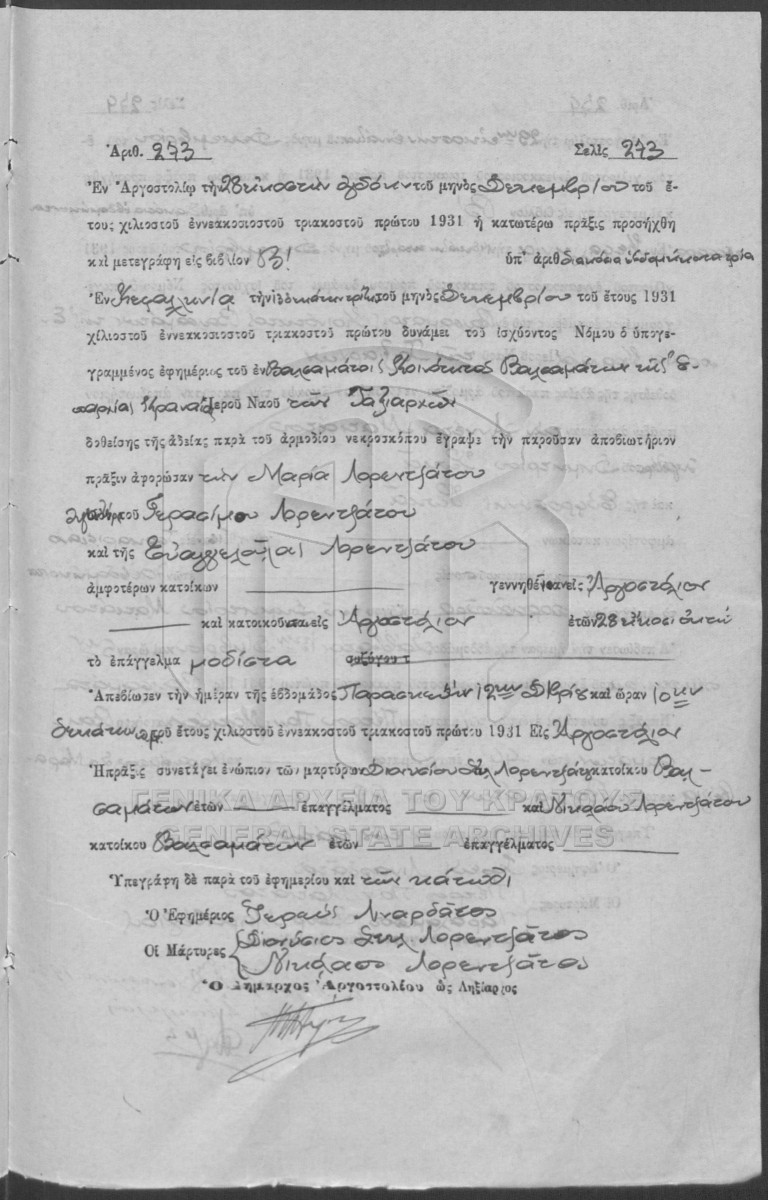 Ἀριθ. 273 Σελὶς 273
Ἐν Ἀργοστολίῳ τὴν 28 εἰκοστὴν ὀγδόην τοῦ μηνὸς Δεκεμβρίου τοῦ ἔ-
τους χιλιοστοῦ ἐννεακοσιοστοῦ τριακοστοῦ πρώτου 1931 ἡ κατωτέρω πρᾶξις προσήχθη
καὶ μετεγράφη εἰς βιβλίον Β! ὑπ' ἀριθ διακόσια ἑβδομήκοντα τρία
Ἐν Κεφαλληνίᾳ τὴν τοῦ μηνὸς Δεκεμβρίου τοῦ ἔτους 1931
χιλιοστοῦ ἐννεακοσιοστοῦ τριακοστοῦ πρώτου δυνάμει τοῦ ἰσχύοντος Νόμου ὁ ὑπογε-
γραμμένος ἐφημέριος τοῦ ἐν Βαλσαμάτοις Κοινότητος Βαλσαμάτων τῆς Ἐ-
παρχίας Κραναίας Ἱεροῦ Ναοῦ τῶν Ταξιαρχῶν
δοθείσης τῆς ἀδείας παρὰ τοῦ ἁρμοδίου νεκροσκόπου ἔγραψε τὴν παροῦσαν ἀποβιωτήριον
πρᾶξιν ἀφορῶσαν τὴν Μαρία Λορεντζάτου
τοῦ Γερασίμου Λορεντζάτου
καὶ τῆς Εὐαγγελούλας Λορεντζάτου
ἀμφοτέρων κατοίκων γεννηθεῖσαν εἰς Ἀργοστόλιον
καὶ κατοικοῦσαν εἰς Ἀργοστόλιον ἐτῶν 28 εἴκοσι ὀκτώ
τὸ ἐπάγγελμα μοδίστα συζύγου τ
Ἀπεβίωσεν τὴν ἡμέραν τῆς ἑβδομάδος Παρασκευὴν 12ην Δ/βρίου καὶ ὥραν 10ην
δεκάτην π.μ. τοῦ ἔτους χιλιοστοῦ ἐννεακοστοῦ τριακοστοῦ πρώτου 1931 Εἰς Ἀργοστόλιον
Ἡ πρᾶξις συνετάγει ἐνώπιον τῶν μαρτύρων Διονυσίου Λορεντζάτου κατοίκου Βαλ-
σαμάτων ἐτῶν ἐπαγγέλματος καὶ Νικολάου Λορεντζάτου
κατοίκου Βαλσαμάτων ἐτῶν ἐπαγγέλματος
Ὑπεγράφη δὲ παρὰ τοῦ ἐφημερίου καὶ τῶν κάτωθι
Ὁ Ἐφημέριος Ἱερεὺς Λιναρδᾶτος
Οἱ Μάρτυρες Διονύσιος Λορεντζάτος
Νικόλαος Λορεντζάτος
Ὁ Δήμαρχος Ἀργοστολίου ὡς Ληξίαρχος
ΓΕΝΙΚΑ ΑΡΧΕΙΑ ΤΟΥ ΚΡΑΤΟΥΣ
GENERAL STATE ARCHIVES